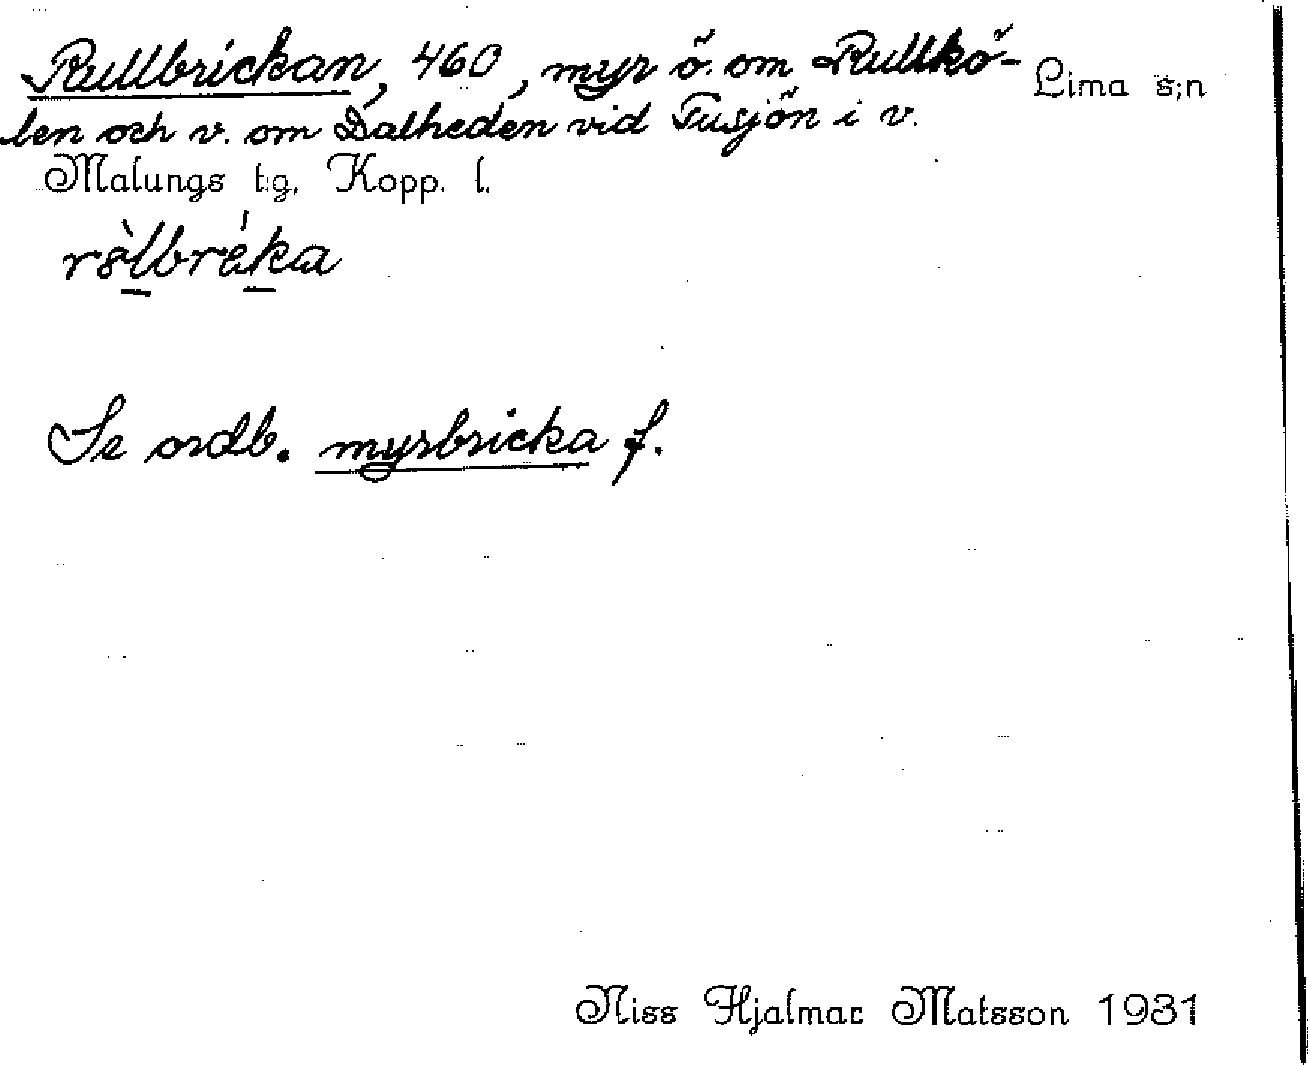 Rullbrickan, 460, myr ö. om Rullkö- Lima s;n
len och v. om Dalheden vid Tusjön i v.
Malungs t:g. Kopp. l.
Se ordb. myrbricka f.
Niss Hjalmar Matsson 1931